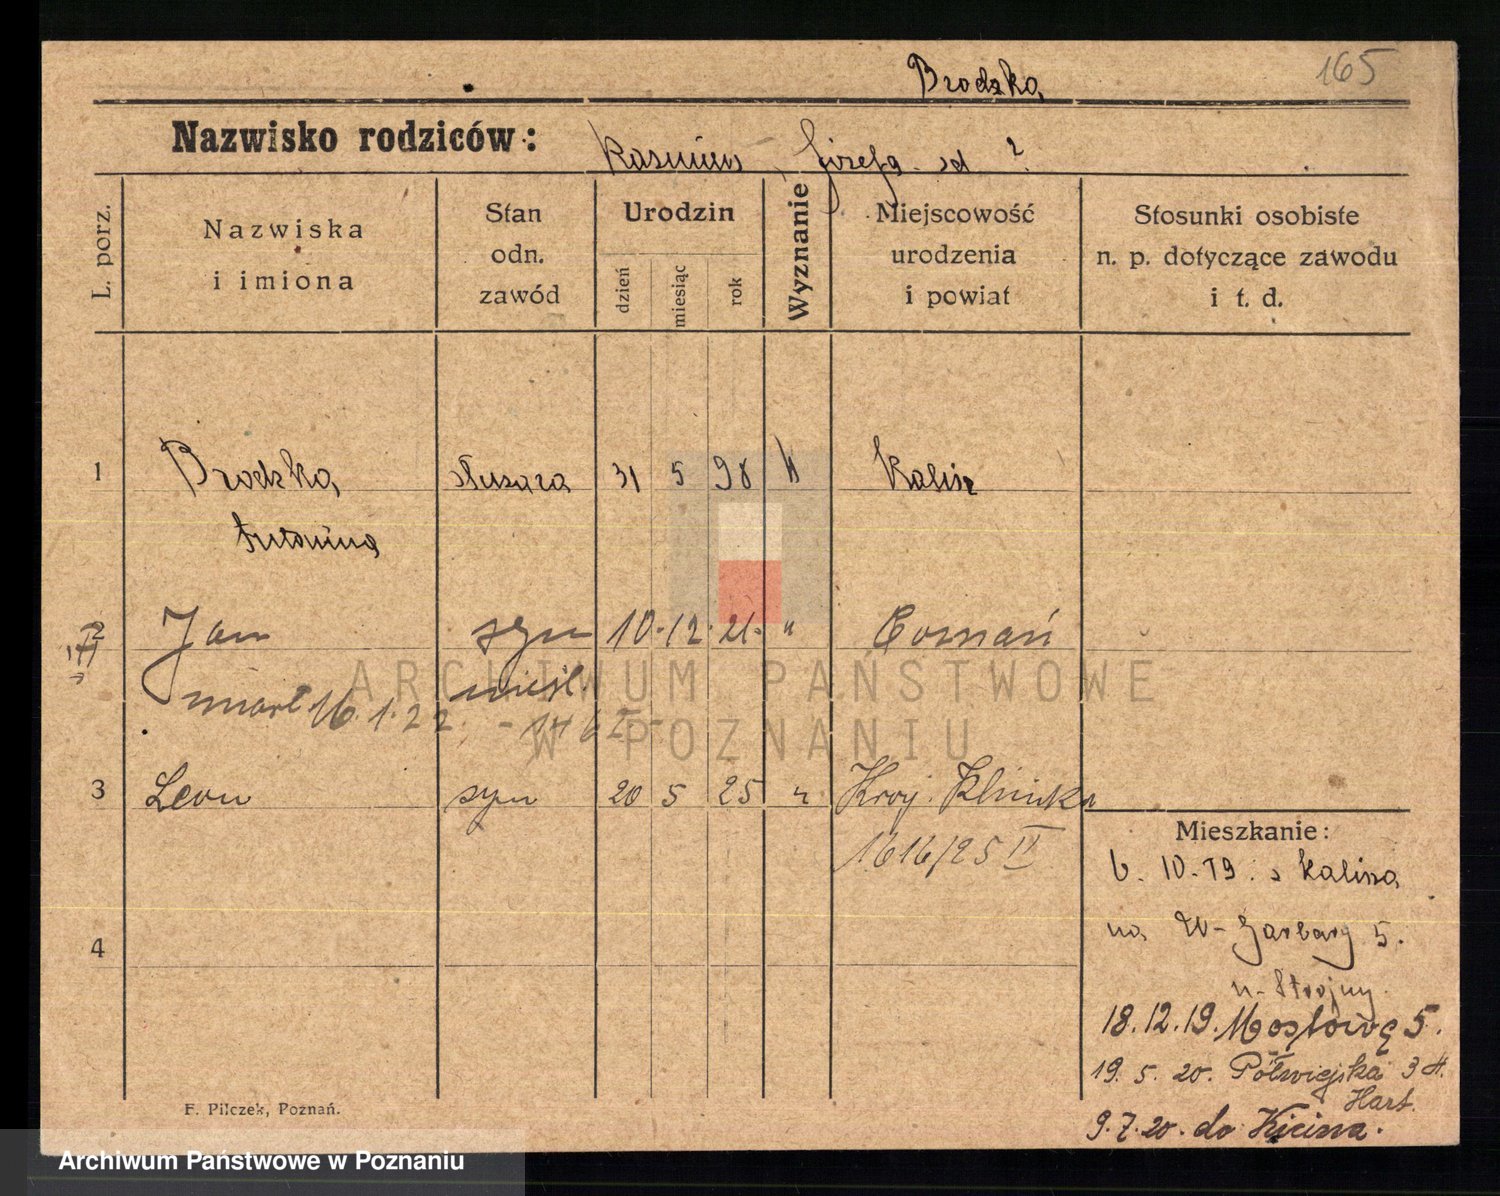 165
Brodzka
Nazwisko rodziców: Kasimierz, Józefa od ?
L. porz.
Nazwiska i imiona
Stan odn. zawód
Urodzin
dzień
miesiąc
rok
Wyznanie
Miejscowość urodzenia i powiat
Stosunki osobiste n. p. dotyczące zawodu i t. d.
1 Brodzka służąca 31 5 98 k Kalisz
Antonina
2 Jan syn 10. 12. 21. " Poznań
nieśl.
zmarł 16.1.22
3 Leon syn 20 5 25 " Kroj. Klinika
1616/25 II
4
Mieszkanie:
6. 10. 19. z Kalisza
na W- Garbary 5.
n- Strojny.
18.12.19. Mostowa 5.
19. 5. 20. Półwiejska 34.
Hart.
9.7.20. do Kicina.
F. Pilczek, Poznań.
ARCHIWUM PAŃSTWOWE
W POZNANIU
Archiwum Państwowe w Poznaniu